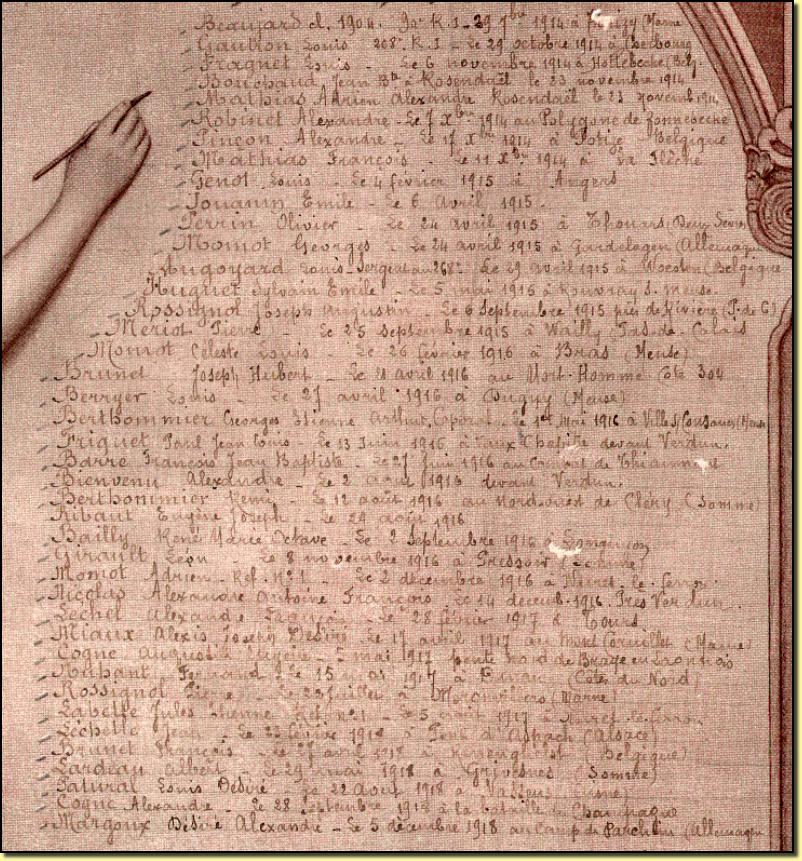 Beaujard cl. 1904. 90e R.I - 29 7bre 1914 à (Marne
Gaulton Louis 208e R.I - Le 29 octobre 1914 à Cherbourg
Fragnet Louis - Le 6 novembre 1914 à Hollebeche (Belg.
Bouchaud Jean Bte à Rosendaël le 23 novembre 1914
Mathias Adrien Alexandre Rosendaël le 23 novemb. 1914
Robinet Alexandre - Le 7 Xbre 1914 au Polygone de Zonnebeche
Pinçon Alexandre - Le 17 Xbre 1914 à Potije Belgique
Mathias François - Le 11 Xbre 1914 à La Flèche
Genot Louis - Le 4 février 1915 à Angers
Jouanin Emile - Le 6 Avril 1915 -
Perrin Olivier - Le 24 avril 1915 à Thouars (Deux Sèvres
Momot Georges - Le 24 avril 1915 à Gardelegen (Allemagne
Augoyard Louis - Sergent au 268e Le 29 avril 1915 à Woesten (Belgique
Huguet Sylvain Emile - Le 5 mai 1916 à Rouvray s. meuse
Rossignol Joseph Augustin - Le 6 Septembre 1915 près de Rivière (P. de C)
Mériot Pierre - Le 25 septembre 1915 à Wailly Pas-de-Calais
Momot Céleste Louis - Le 26 février 1916 à Bras (Meuse)
Brunet Joseph Hubert - Le 21 avril 1916 au Mort-Homme Cote 304
Berryer Louis - Le 27 avril 1916 à Dugny (Meuse)
Berthommier Georges Etienne Arthur, Caporal - Le 1er Mai 1916 à Ville s/ Cousances (Meuse
Friquet Paul Jean Louis - Le 13 Juin 1916 à Vaux Chapitre devant Verdun.
Barre François Jean Baptiste - Le 27 Juin 1916 au Combat de Thiaumont
Bienvenu Alexandre - Le 2 Août 1916 devant Verdun.
Berthommier Remi - Le 12 août 1916 au Nord-ouest de Cléry (Somme)
Ribaut Eugène Joseph - Le 29 août 1916
Bailly René Marie Octave - Le 2 Septembre 1916 à
Girault Léon - Le 8 novembre 1916 à Pressoir (Somme)
Momot Adrien - Ref. No 1 - Le 2 décembre 1916 à Neuret-le-Ferron
Nicolas Alexandre Antoine François Le 14 décemb. 1916. Près Verdun.
Lechel Alexandre - Le 28 février 1917 à Tours
Miaux Alexis Joseph Désiré Le 17 avril 1917 au Mont Cornillet (Marne)
Cogne Auguste Eugène - 5 mai 1917 pente nord de Braye en Laonnois
Fernand Le 15 1917 à Dinan (Côtes du Nord)
Rossignol Pierre - Le 23 Juillet à Moronvilliers (Marne)
Labelle Jules Etienne Ref. no 1 - Le 5 août 1917 à Neuret-le-Ferron
Léchelle Jean - Le 22 février 1918 à Pont d'Aspach (Alsace)
Brunet François - Le 27 avril 1918 à (Belgique)
Lardeau Albert - Le 29 mai 1918 à Grivesnes (Somme)
Patural Louis Désiré - Le 22 Août 1918 à Vassens (Aisne)
Cogne Alexandre - Le 28 Septembre 1918 à la bataille de Champagne
Margoux Désiré Alexandre - Le 5 décembre 1918 au Camp de Parchim (Allemagne